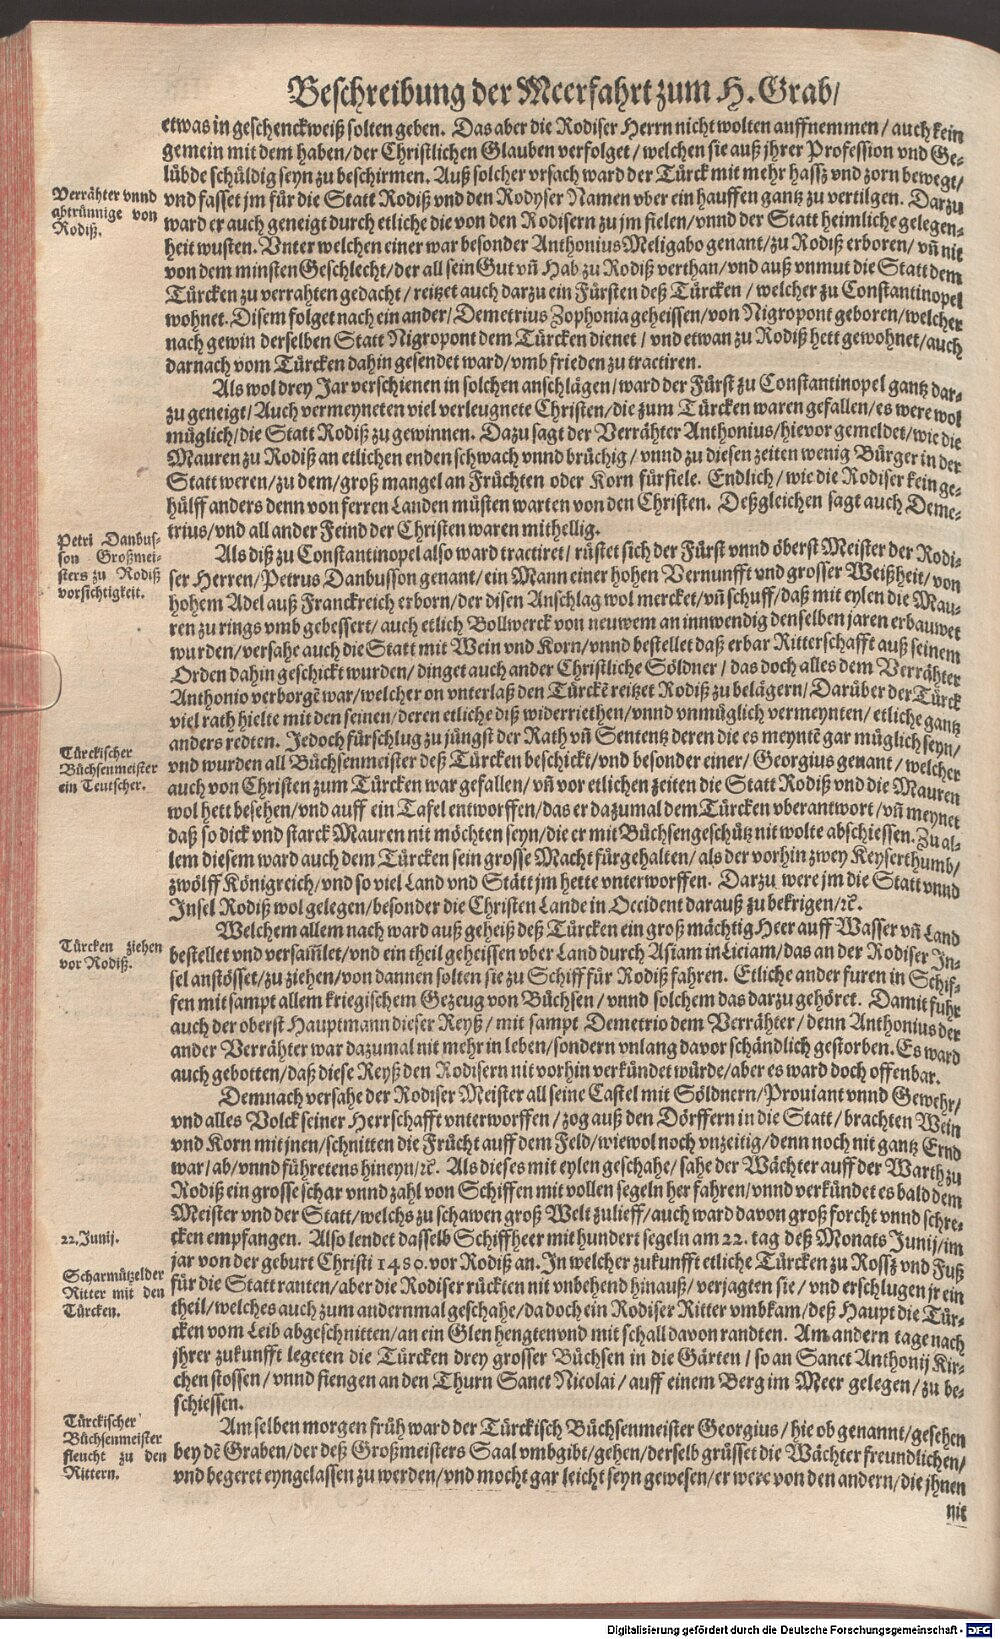 Beschreibung der Meerfahrt zum H. Grab/
etwas in geschenckweiß solten geben. Das aber die Rodiser Herrn nicht wolten auffnemmen / auch kein
gemein mit dem haben/der Christlichen Glauben verfolget / welchen sie auß jhrer Profession vnd Ge-
lübde schüldig seyn zu beschirmen. Auß solcher vrsach ward der Türck mit mehr hassz vnd zorn bewegt/
Verrähter vnnd
abtrünnige von
Rodiß.
vnd fasset jm für die Statt Rodiß vnd den Rodyser Namen vber ein hauffen gantz zu vertilgen. Darzu
ward er auch geneigt durch etliche die von den Rodisern zu jm fielen/vnnd der Statt heimliche gelegen-
heit wusten. Vnter welchen einer war besonder Anthonius Meligabo genant/zu Rodiß erboren/ vñ nit
von dem minsten Geschlecht/der all sein Gut vñ Hab zu Rodiß verthan/vnd auß vnmut die Statt dem
Türcken zu verrahten gedacht / reitzet auch darzu ein Fürsten deß Türcken / welcher zu Constantinopel
wohnet. Disem folget nach ein ander/Demetrius Zophonia geheissen/von Nigropont geboren/welcher
nach gewin derselben Statt Nigropont dem Türcken dienet / vnd etwan zu Rodiß hett gewohnet/auch
darnach vom Türcken dahin gesendet ward/vmb frieden zu tractiren.
Als wol drey Jar verschienen in solchen anschlägen/ward der Fürst zu Constantinopel gantz dar-
zu geneigt/Auch vermeyneten viel verleugnete Christen/die zum Türcken waren gefallen/es were wol
müglich/die Statt Rodiß zu gewinnen. Dazu sagt der Verrähter Anthonius/hievor gemeldet/wie die
Mauren zu Rodiß an etlichen enden schwach vnnd brüchig / vnnd zu diesen zeiten wenig Bürger in der
Statt weren/zu dem/groß mangel an Früchten oder Korn fürfiele. Endlich / wie die Rodiser kein ge-
hülff anders denn von ferren Landen müsten warten von den Christen. Deßgleichen sagt auch Deme-
trius/vnd all ander Feind der Christen waren mithellig.
Petri Danbus-
son Großmei-
sters zu Rodiß
vorsichtigkeit.
Als diß zu Constantinopel also ward tractiret / rüstet sich der Fürst vnnd öberst Meister der Rodi-
ser Herren/Petrus Danbusson genant/ein Mann einer hohen Vernunfft vnd grosser Weißheit/von
hohem Adel auß Franckreich erborn/der disen Anschlag wol mercket/vñ schuff/daß mit eylen die Mau-
ren zu rings vmb gebessert/auch etlich Bollwerck von neuwem an innwendig denselben jaren erbauwet
wurden/versahe auch die Statt mit Wein vnd Korn/vnnd bestellet daß erbar Ritterschafft auß seinem
Orden dahin geschickt wurden/dinget auch ander Christliche Söldner / das doch alles dem Verrähter
Anthonio verborgẽ war/welcher on vnterlaß den Türckẽ reitzet Rodiß zu belägern/Darüber der Türck
viel rath hielte mit den seinen/deren etliche diß widerriethen/vnnd vnmüglich vermeynten/etliche gantz
anders redten. Jedoch fürschlug zu jüngst der Rath vñ Sententz deren die es meyntẽ gar müglich seyn/
Türckischer
Büchsenmeister
ein Teutscher.
vnd wurden all Büchsenmeister deß Türcken beschickt/vnd besonder einer/ Georgius genant / welcher
auch von Christen zum Türcken war gefallen/vñ vor etlichen zeiten die Statt Rodiß vnd die Mauren
wol hett besehen/vnd auff ein Tafel entworffen/das er dazumal dem Türcken vberantwort/vñ meynet
daß so dick vnd starck Mauren nit möchten seyn/die er mit Büchsengeschütz nit wolte abschiessen. Zu al-
lem diesem ward auch dem Türcken sein grosse Macht fürgehalten/als der vorhin zwey Keyserthumb/
zwölff Königreich/vnd so viel Land vnd Stätt jm hette vnterworffen. Darzu were jm die Statt vnnd
Insel Rodiß wol gelegen/besonder die Christen Lande in Occident darauß zu bekrigen/ꝛc̃.
Türcken ziehen
vor Rodiß.
Welchem allem nach ward auß geheiß deß Türcken ein groß mächtig Heer auff Wasser vñ Land
bestellet vnd versam̃let/vnd ein theil geheissen vber Land durch Asiam in Liciam/das an der Rodiser In-
sel anstösset/zu ziehen/von dannen solten sie zu Schiff für Rodiß fahren. Etliche ander furen in Schif-
fen mit sampt allem kriegischem Gezeug von Büchsen / vnnd solchem das darzu gehöret. Damit fuhr
auch der oberst Hauptmann dieser Reyß / mit sampt Demetrio dem Verrähter / denn Anthonius der
ander Verrähter war dazumal nit mehr in leben/sondern vnlang davor schändlich gestorben. Es ward
auch gebotten/daß diese Reyß den Rodisern nit vorhin verkündet würde/aber es ward doch offenbar.
Demnach versahe der Rodiser Meister all seine Castel mit Söldnern/Proviant vnnd Gewehr/
vnd alles Volck seiner Herrschafft vnterworffen / zog auß den Dörffern in die Statt / brachten Wein
vnd Korn mit jnen/schnitten die Frücht auff dem Feld/wiewol noch vnzeitig/denn noch nit gantz Ernd
war/ab/vnnd führetens hineyn/ꝛc̃. Als dieses mit eylen geschahe/sahe der Wächter auff der Warth zu
Rodiß ein grosse schar vnnd zahl von Schiffen mit vollen segeln her fahren/vnnd verkündet es bald dem
Meister vnd der Statt/welchs zu schawen groß Welt zulieff/auch ward davon groß forcht vnnd schre-
22. Junij.
cken empfangen. Also lendet dasselb Schiffheer mit hundert segeln am 22. tag deß Monats Junij/im
jar von der geburt Christi 1480. vor Rodiß an. In welcher zukunfft etliche Türcken zu Rossz vnd Fuß
Scharmützelder
Ritter mit den
Türcken.
für die Statt ranten/aber die Rodiser rückten nit vnbehend hinauß/ verjagten sie / vnd erschlugen jr ein
theil/welches auch zum andernmal geschahe/da doch ein Rodiser Ritter vmbkam/deß Haupt die Tür-
cken vom Leib abgeschnitten/an ein Glen hengten vnd mit schall davon randten. Am andern tage nach
jhrer zukunfft legeten die Türcken drey grosser Büchsen in die Gärten / so an Sanct Anthonij Kir-
chen stossen / vnnd fiengen an den Thurn Sanct Nicolai / auff einem Berg im Meer gelegen / zu be-
schiessen.
Türckischer
Büchsenmeister
fleucht zu den
Rittern.
Am selben morgen früh ward der Türckisch Büchsenmeister Georgius / hie ob genannt/gesehen
bey dẽ Graben/der deß Großmeisters Saal vmbgibt/gehen/derselb grüsset die Wächter freundlichen/
vnd begeret eyngelassen zu werden/vnd mocht gar leicht seyn gewesen/er were von den andern/die jhnen
nit
Digitalisierung gefördert durch die Deutsche Forschungsgemeinschaft - DFG